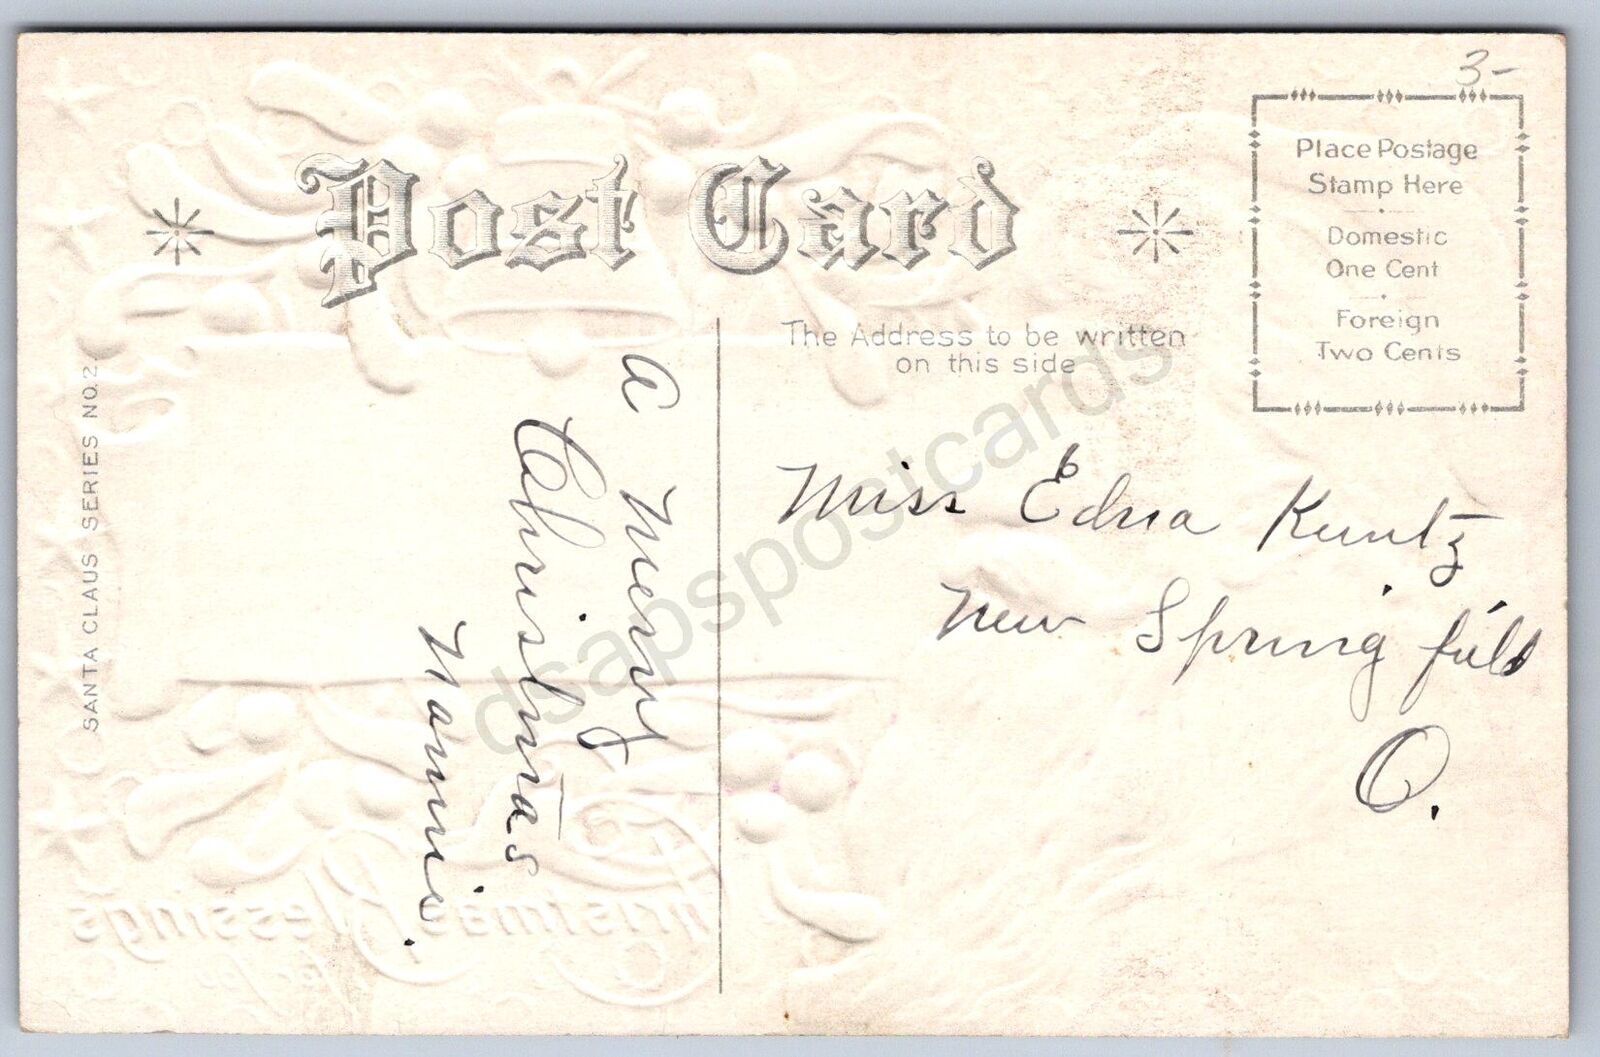 3-
Post Card
Place Postage
Stamp Here
Domestic
One Cent
Foreign
Two Cents
The Address to be written
on this side
SANTA CLAUS SERIES NO. 2
A Merry
Christmas
Nannie.
Miss Edna Kuntz
New Spring field
O.
Christmas Blessings
for you
dsapspostcards